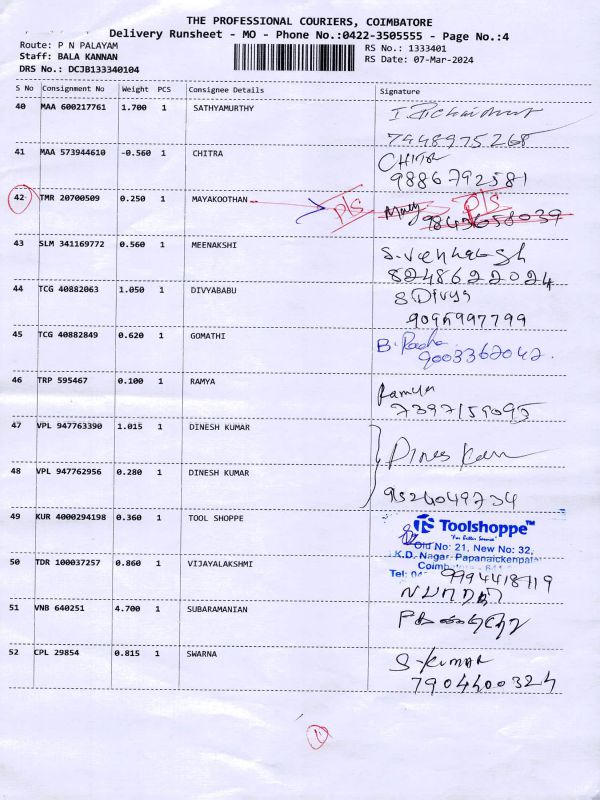 THE PROFESSIONAL COURIERS, COIMBATORE
Delivery Runsheet - MO - Phone No.:0422-3505555 - Page No.:4
Route: P N PALAYAM
RS No.: 1333401
Staff: BALA KANNAN
RS Date: 07-Mar-2024
DRS No.: DCJB133340104
S No Consignment No Weight PCS Consignee Details Signature
40 MAA 600217761 1.700 1 SATHYAMURTHY
7448975268
41 MAA 573944610 -0.560 1 CHITRA CHITRA
9886792581
42 TMR 20700509 0.250 1 MAYAKOOTHAN pls pls
9843658039
43 SLM 341169772 0.560 1 MEENAKSHI S. Venkatesh
8248622024
44 TCG 40882063 1.050 1 DIVYABABU S Divya
9095997799
45 TCG 40882849 0.620 1 GOMATHI B. Radha
9003362042.
46 TRP 595467 0.100 1 RAMYA Ramya
7397159095
47 VPL 947763390 1.015 1 DINESH KUMAR
48 VPL 947762956 0.280 1 DINESH KUMAR
49 KUR 4000294198 0.360 1 TOOL SHOPPE Toolshoppe™
"For Better Source"
Old No: 21, New No: 32,
K.D. Nagar, Papanaickenpalay
50 TDR 100037257 0.860 1 VIJAYALAKSHMI Coimbatore - 641
Tel: 04 9994418119
51 VNB 640251 4.700 1 SUBARAMANIAN
52 CPL 29854 0.815 1 SWARNA S-Kumar
7904400324
1